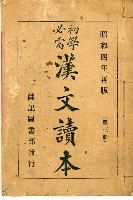 昭和四年再版
初學
必需
漢文讀本
第三冊
蘭記圖書部發行